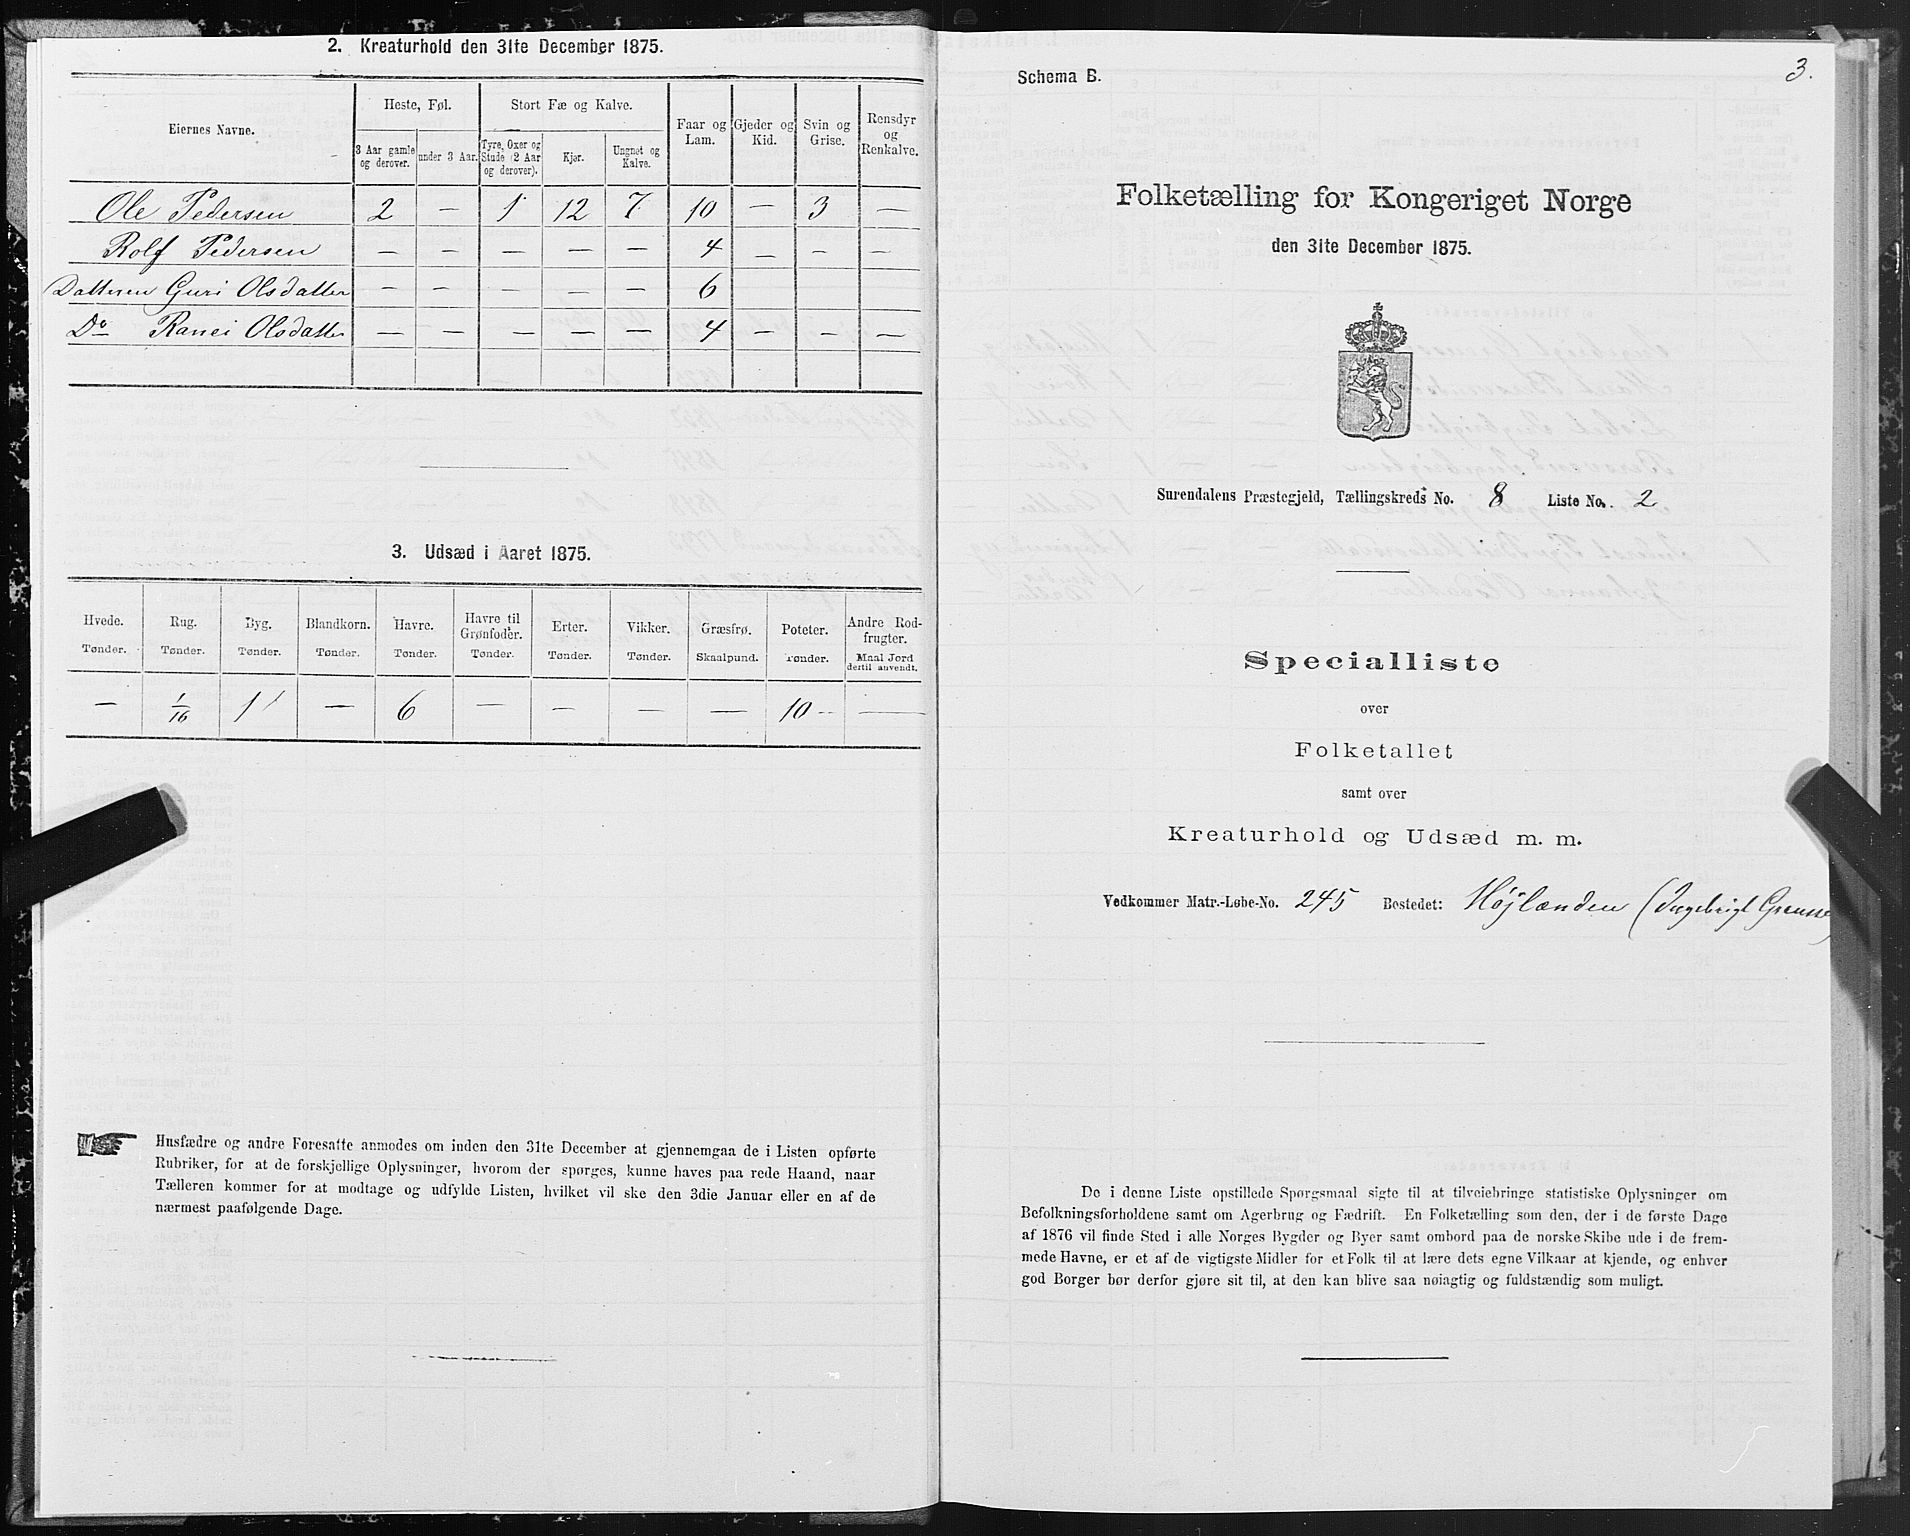 2. Kreaturhold den 31te December 1875.
Eiernes Navne. | Heste, Føl. | Stort Fæ og Kalve. | Faar og Lam. | Gjeder og Kid. | Svin og Grise. | Rensdyr og Renkalve.
3 Aar gamle og derover. | under 3 Aar. | Tyre, Oxer og Stude (2 Aar og derover). | Kjør. | Ungnøt og Kalve.
Ole Pedersen | 2 | — | 1 | 12 | 7 | 10 | — | 3 | —
Rolf Pedersen | — | — | — | — | — | 4 | — | — | —
Datteren Guri Olsdatter | — | — | — | — | — | 6
Do Ranei Olsdatter | — | — | — | — | — | 4 | — | — | —
3. Udsæd i Aaret 1875.
Hvede. | Rug. | Byg. | Blandkorn. | Havre. | Havre til Grønfoder. | Erter. | Vikker. | Græsfrø. | Poteter. | Andre Rodfrugter.
Tønder. | Tønder. | Tønder. | Tønder. | Tønder. | Tønder. | Tønder. | Tønder. | Skaalpund. | Tønder. | Maal Jord dertil anvendt.
— | 1/16 | 1 | — | 6 | — | — | — | — | 10 | —
Husfædre og andre Foresatte anmodes om inden den 31te December at gjennemgaa de i Listen opførte
Rubriker, for at de forskjellige Oplysninger, hvorom der spørges, kunne haves paa rede Haand, naar
Tælleren kommer for at modtage og udfylde Listen, hvilket vil ske den 3die Januar eller en af de
nærmest paafølgende Dage.
3.
Schema B.
Folketælling for Kongeriget Norge
den 31te December 1875.
Surendalens Præstegjeld, Tællingskreds No. 8 Liste No. 2
Specialliste
over
Folketallet
samt over
Kreaturhold og Udsæd m. m.
Vedkommer Matr.-Løbe-No. 245 Bostedet: Højlænden (Ingebrigt
De i denne Liste opstillede Spørgsmaal sigte til at tilveiebringe statistiske Oplysninger om
Befolkningsforholdene samt om Agerbrug og Fædrift. En Folketælling som den, der i de første Dage
af 1876 vil finde Sted i alle Norges Bygder og Byer samt ombord paa de norske Skibe ude i de frem-
mede Havne, er et af de vigtigste Midler for et Folk til at lære dets egne Vilkaar at kjende, og enhver
god Borger bør derfor gjøre sit til, at den kan blive saa nøiagtig og fuldstændig som muligt.